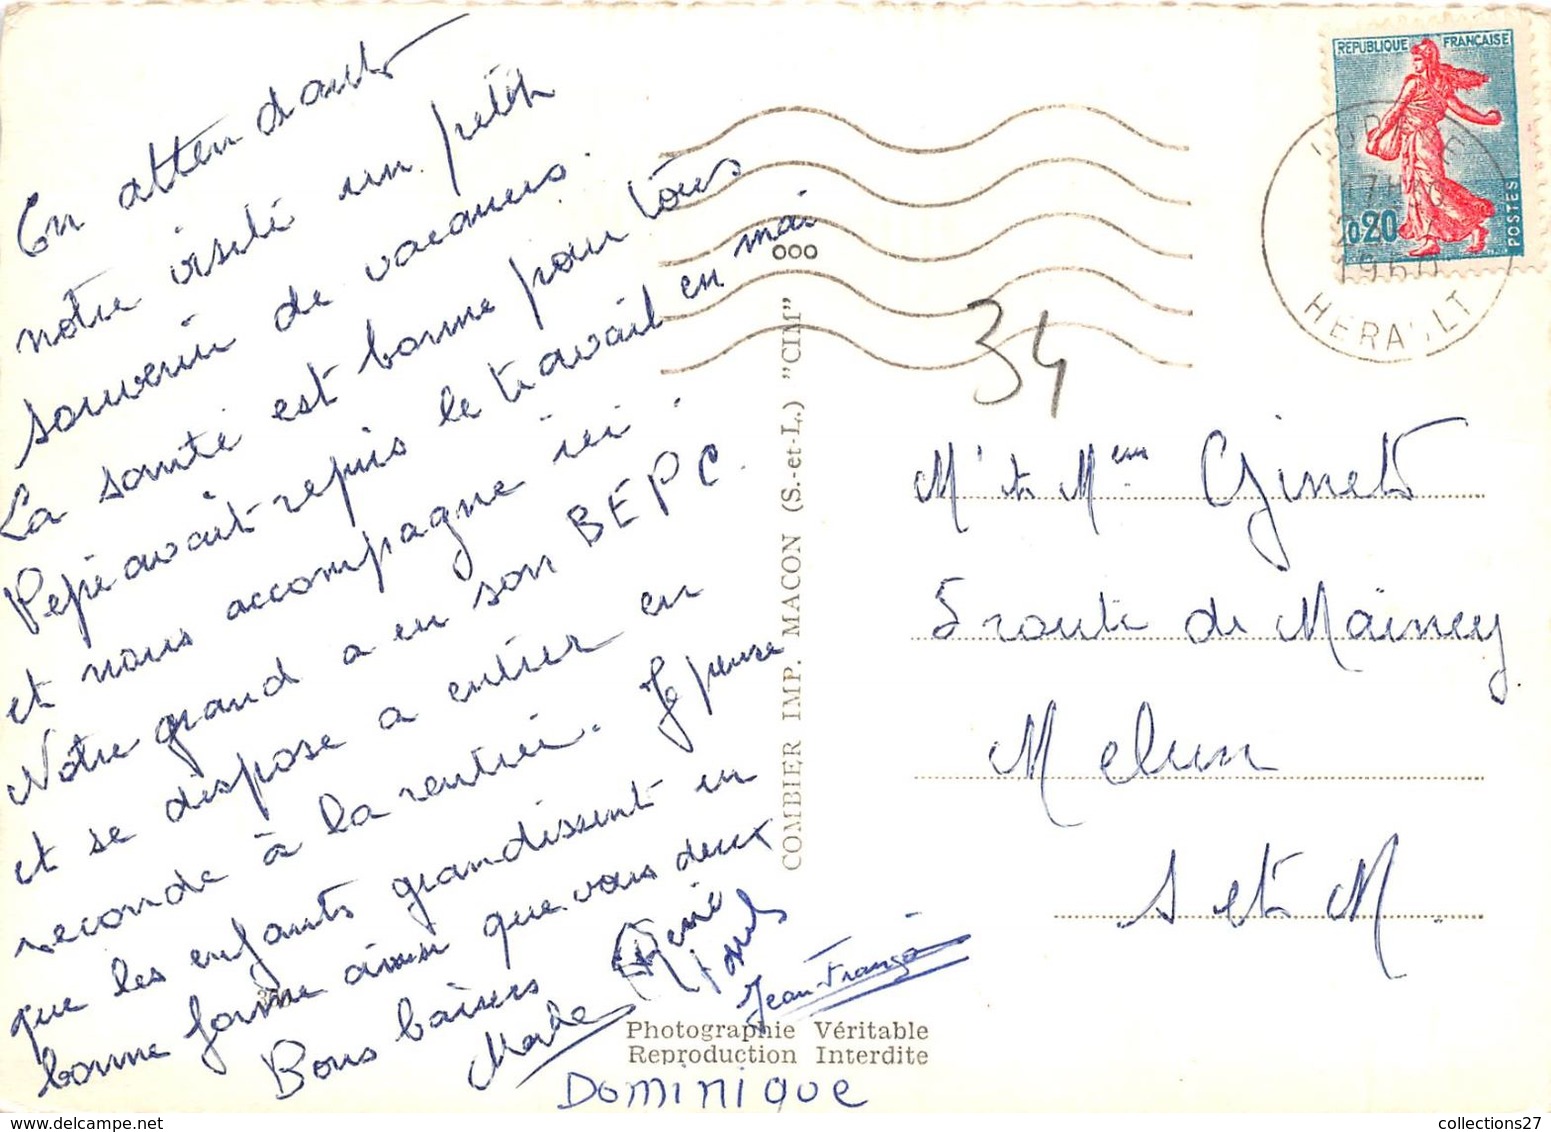 En attendant
notre visite un petit
souvenir de vacances.
La santé est bonne pour tous
Pepé avait repris le travail en mai
et nous accompagne ici.
Notre grand a eu son BEPC.
et se dispose a entrer en
seconde à la rentrée. Je pense
que les enfants grandissent en
bonne forme ainsi que vous deux
Bons baisers
René
Jean-Franço
DOMINIQUE
COMBIER IMP. MACON (S.-et-L.) "CIM"
Photographie Véritable
Reproduction Interdite
REPUBLIQUE FRANÇAISE
0,20
POSTES
17H
1960
HERAULT
34
Mr et Mme Ginet
5 route de Maincy
Melun
S et M
collections27